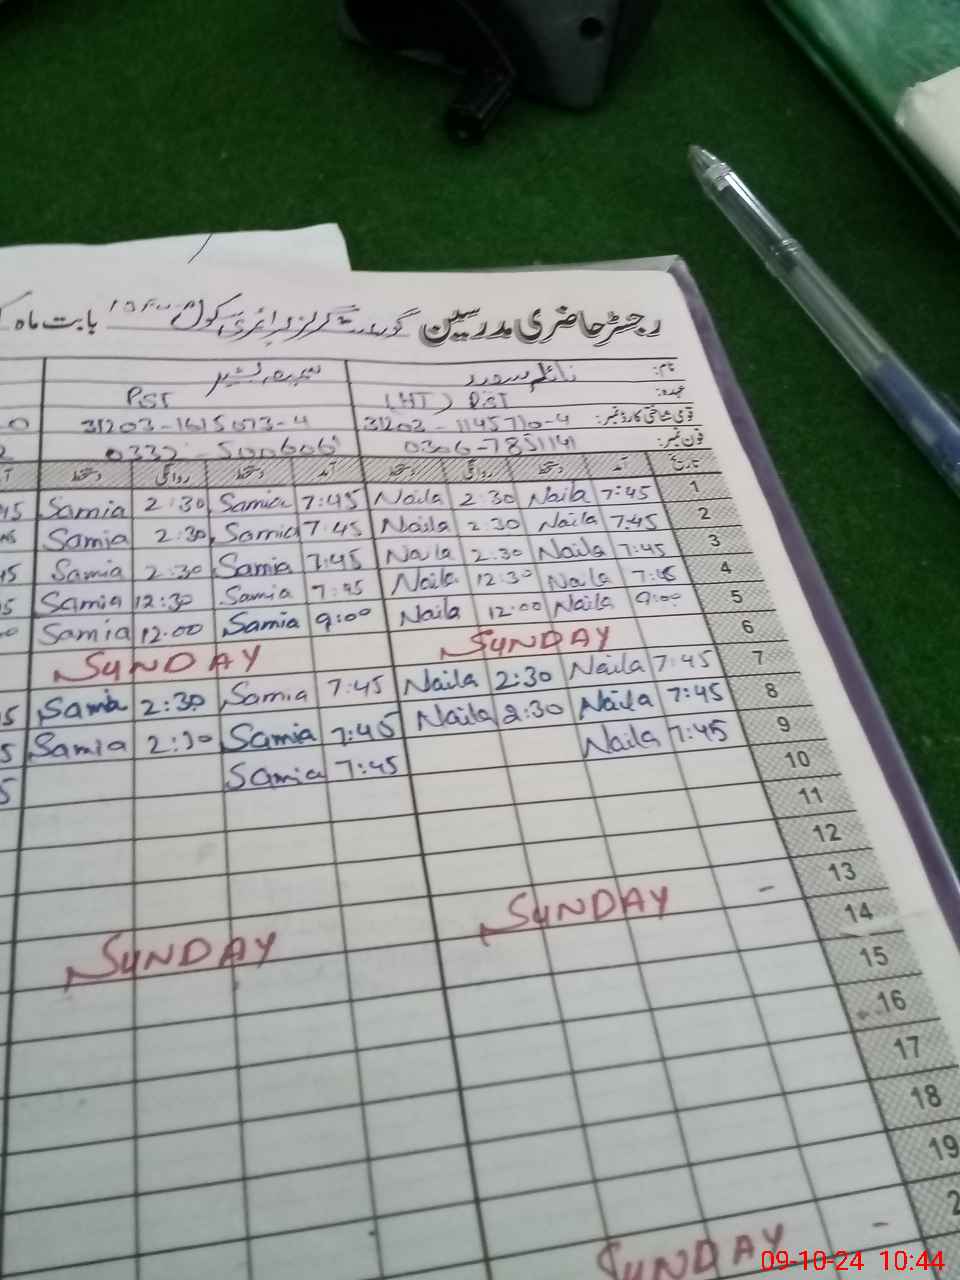 رجسٹر حاضری مدرسین گورنمنٹ گرلز پرائمری سکول بابت ماہ
نام:
عہدہ: (HT) PST PST
قومی شناختی کارڈ نمبر: 31203-1145710-4 31203-1615073-4
فون نمبر: 0306-7851141
تاریخ آمد دستخط روانگی دستخط آمد دستخط روانگی دستخط
1 7:45 Naila 2:30 Naila 7:45 Samia 2:30 Samia
2 7:45 Naila 2:30 Naila 7:45 Samia 2:30 Samia
3 7:45 Naila 2:30 Naila 7:45 Samia 2:30 Samia
4 7:45 Naila 12:30 Naila 7:45 Samia 12:30 Samia
5 9:00 Naila 12:00 Naila 9:00 Samia 12:00 Samia
6 SUNDAY SUNDAY
7 7:45 Naila 2:30 Naila 7:45 Samia 2:30 Samia
8 7:45 Naila 2:30 Naila 7:45 Samia 2:30 Samia
9 7:45 Naila 7:45 Samia
10
11
12
13 - SUNDAY SUNDAY
14
15
16
17
18
19
- SUNDAY
09-10-24 10:44